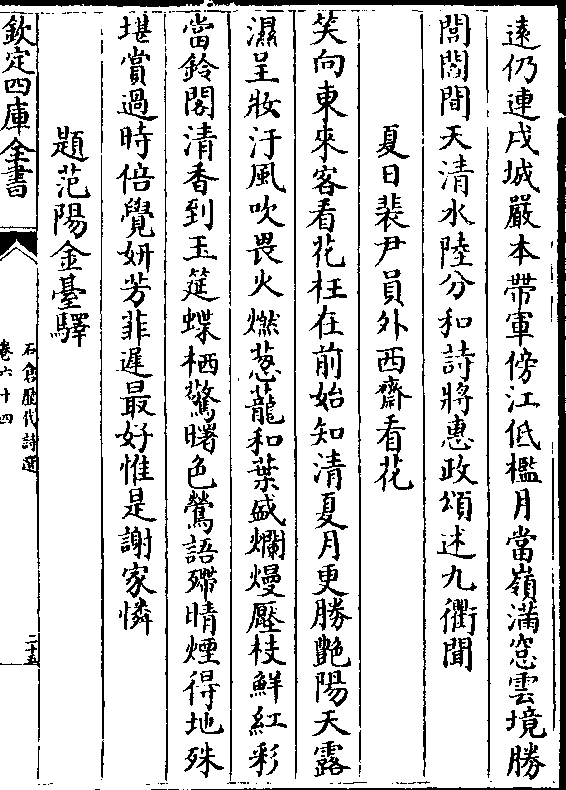 遠仍連戍城嚴本帶軍傍江低檻月當嶺滿窓雲境勝
閭閻間天清水陸分和詩將惠政頌述九衢聞
夏日裴尹員外西齋看花
笑向東來客看花枉在前始知清夏月更勝艶陽天露
濕呈妝汙風吹畏火燃葱蘢和葉盛爛熳壓枝鮮紅彩
當鈴閣清香到玉筵蝶栖驚曙色鶯語殢晴煙得地殊
堪賞過時倍覺妍芳菲遲最好惟是謝家憐
題范陽金臺驛
欽定四庫全書
石倉歷代詩選
卷六十四
二十五